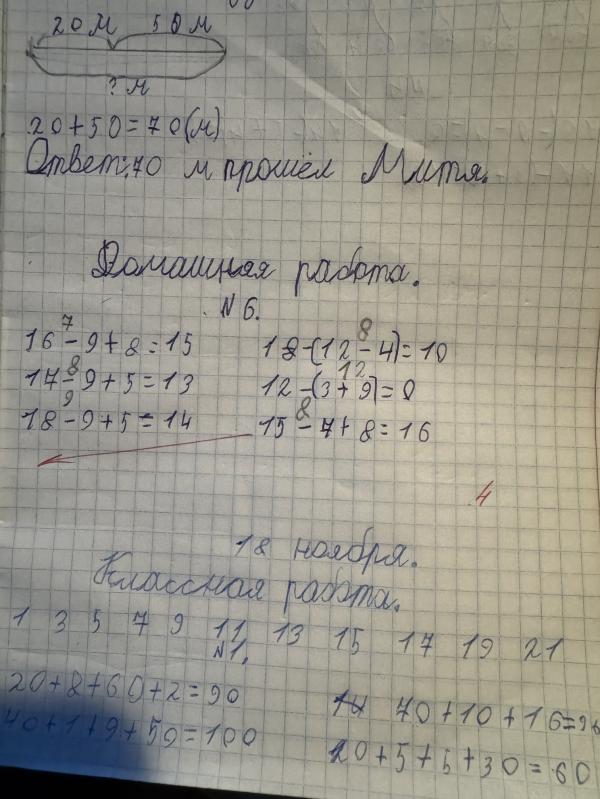 20 м 50 м
? м
20+50=70(м)
Ответ:70 м прошёл Митя.
Домашняя работа.
№6.
7
16-9+8=15
8
18-(12-4)=10
8
17-9+5=13
12
12-(3+9)=0
9
18-9+5=14
8
15-7+8=16
4
18 ноября.
Классная работа.
1 3 5 7 9 11 13 15 17 19 21
№1.
20+8+60+2=90
70+10+16=96
40+1+9+50=100
20+5+5+30=60